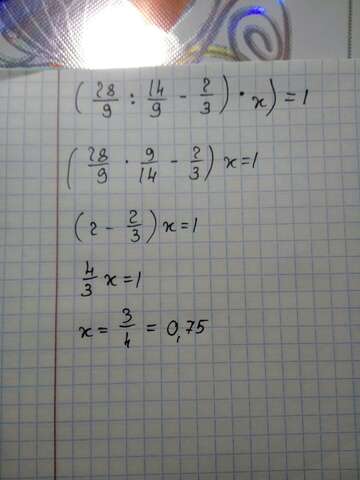 ( 28/9 : 14/9 - 2/3 ) · x ) = 1
( 28/9 · 9/14 - 2/3 ) x = 1
( 2 - 2/3 ) x = 1
4/3 x = 1
x = 3/4 = 0,75